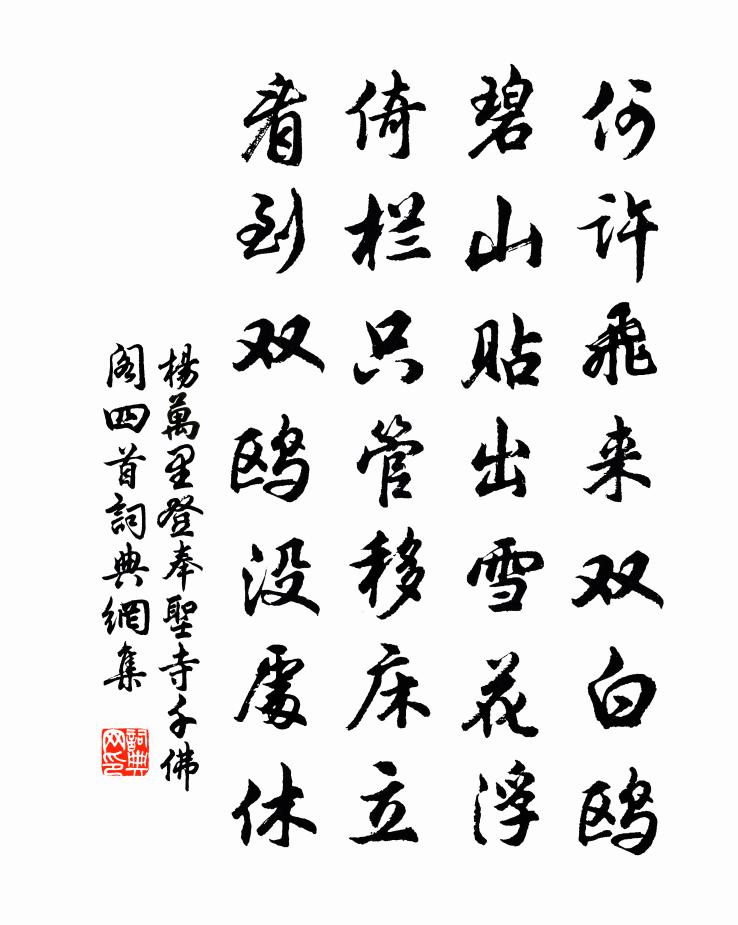 何许飛来双白鸥
碧山貼出雪花浮
倚栏只管移床立
看到双鸥没處休
楊萬里登奉聖寺千佛
阁四首詞典網集
詞典网印